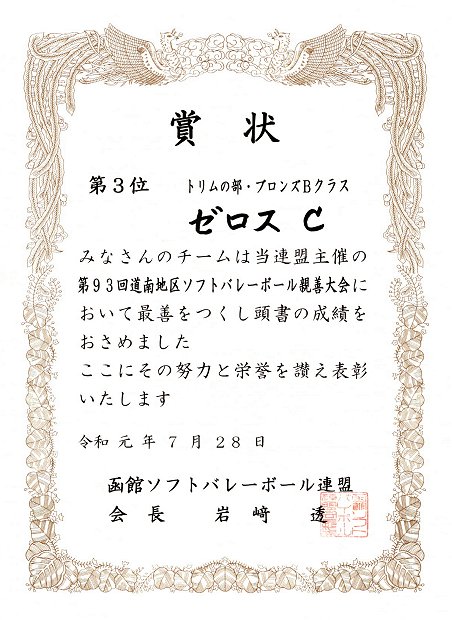 賞状
第３位　トリムの部・ブロンズＢクラス
ゼロス　Ｃ
みなさんのチームは当連盟主催の
第９３回道南地区ソフトバレーボール親善大会に
おいて最善をつくし頭書の成績を
おさめました
ここにその努力と栄誉を讃え表彰
いたします
令和元年７月２８日
函館ソフトバレーボール連盟
会長　岩﨑　透